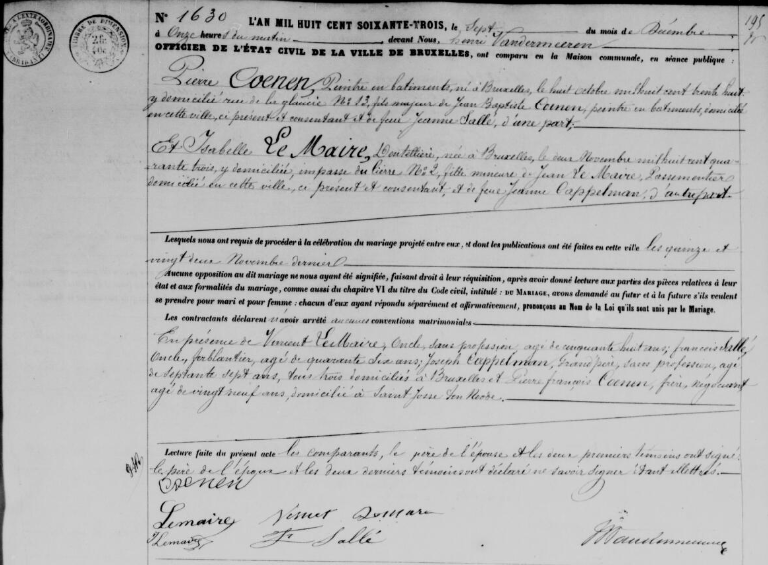 N° 1630 L'AN MIL HUIT CENT SOIXANTE-TROIS, le Sept du mois de Décembre
à Onze heures du matin devant Nous, henri Vandermeeren
OFFICIER DE L'ÉTAT CIVIL DE LA VILLE DE BRUXELLES, ont comparu en la Maison communale, en séance publique :
Pierre Coenen, Peintre en batiments, né à Bruxelles, le huit octobre mil huit cent trente huit
y domicilié rue de la glacière N° 13, fils majeur de Jean Baptiste Coenen, peintre en batiments, domicilié
en cette ville, ci présent et consentant et de feue Jeanne Sallé, d'une part,
Et Isabelle Le Maire, Dentellière, née à Bruxelles, le deux Novembre mil huit cent qua-
rante trois, y domiciliée, impasse du lierre N° 2, fille mineure de Jean Le Maire, Passementier
domicilié en cette ville, ci présent et consentant, et de feue Jeanne Cappelman, d'autre part.
Lesquels nous ont requis de procéder à la célébration du mariage projeté entre eux, et dont les publications ont été faites en cette ville les quinze et
vingt deux Novembre dernier
Aucune opposition au dit mariage ne nous ayant été signifiée, faisant droit à leur réquisition, après avoir donné lecture aux parties des pièces relatives à leur
état et aux formalités du mariage, comme aussi du chapitre VI du titre du Code civil, intitulé : DU MARIAGE, avons demandé au futur et à la future s'ils veulent
se prendre pour mari et pour femme : chacun d'eux ayant répondu séparément et affirmativement, prononçons au Nom de la Loi qu'ils sont unis par le Mariage.
Les contractants déclarent n'avoir arrêté aucunes conventions matrimoniales
En présence de Vincent Le Maire, Oncle, sans profession, agé de cinquante huit ans; françois Sallé,
Oncle, ferblantier, agé de quarante six ans; Joseph Cappelman, Grand père, sans profession, agé
de septante sept ans, tous trois domiciliés à Bruxelles et Pierre françois Coenen, frère, Négociant
agé de vingt neuf ans, domicilié à Saint Josse ten Noode.
Lecture faite du présent acte les comparants, le père de l'épouse et les deux premiers témoins ont signé
le père de l'époux et les deux derniers témoins ont déclaré ne savoir signer étant illettrés.
Coenen
Lemaire
Lemaire
Sallé